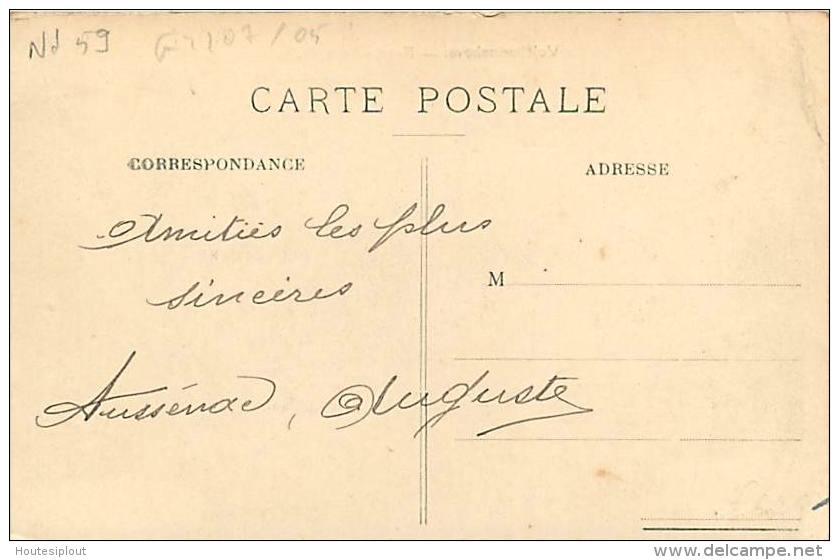 Nd 59
CARTE POSTALE
CORRESPONDANCE
ADRESSE
Amitiés les plus
sincères
M
Aussénac, Auguste
Houtesiplout
delcampe.net